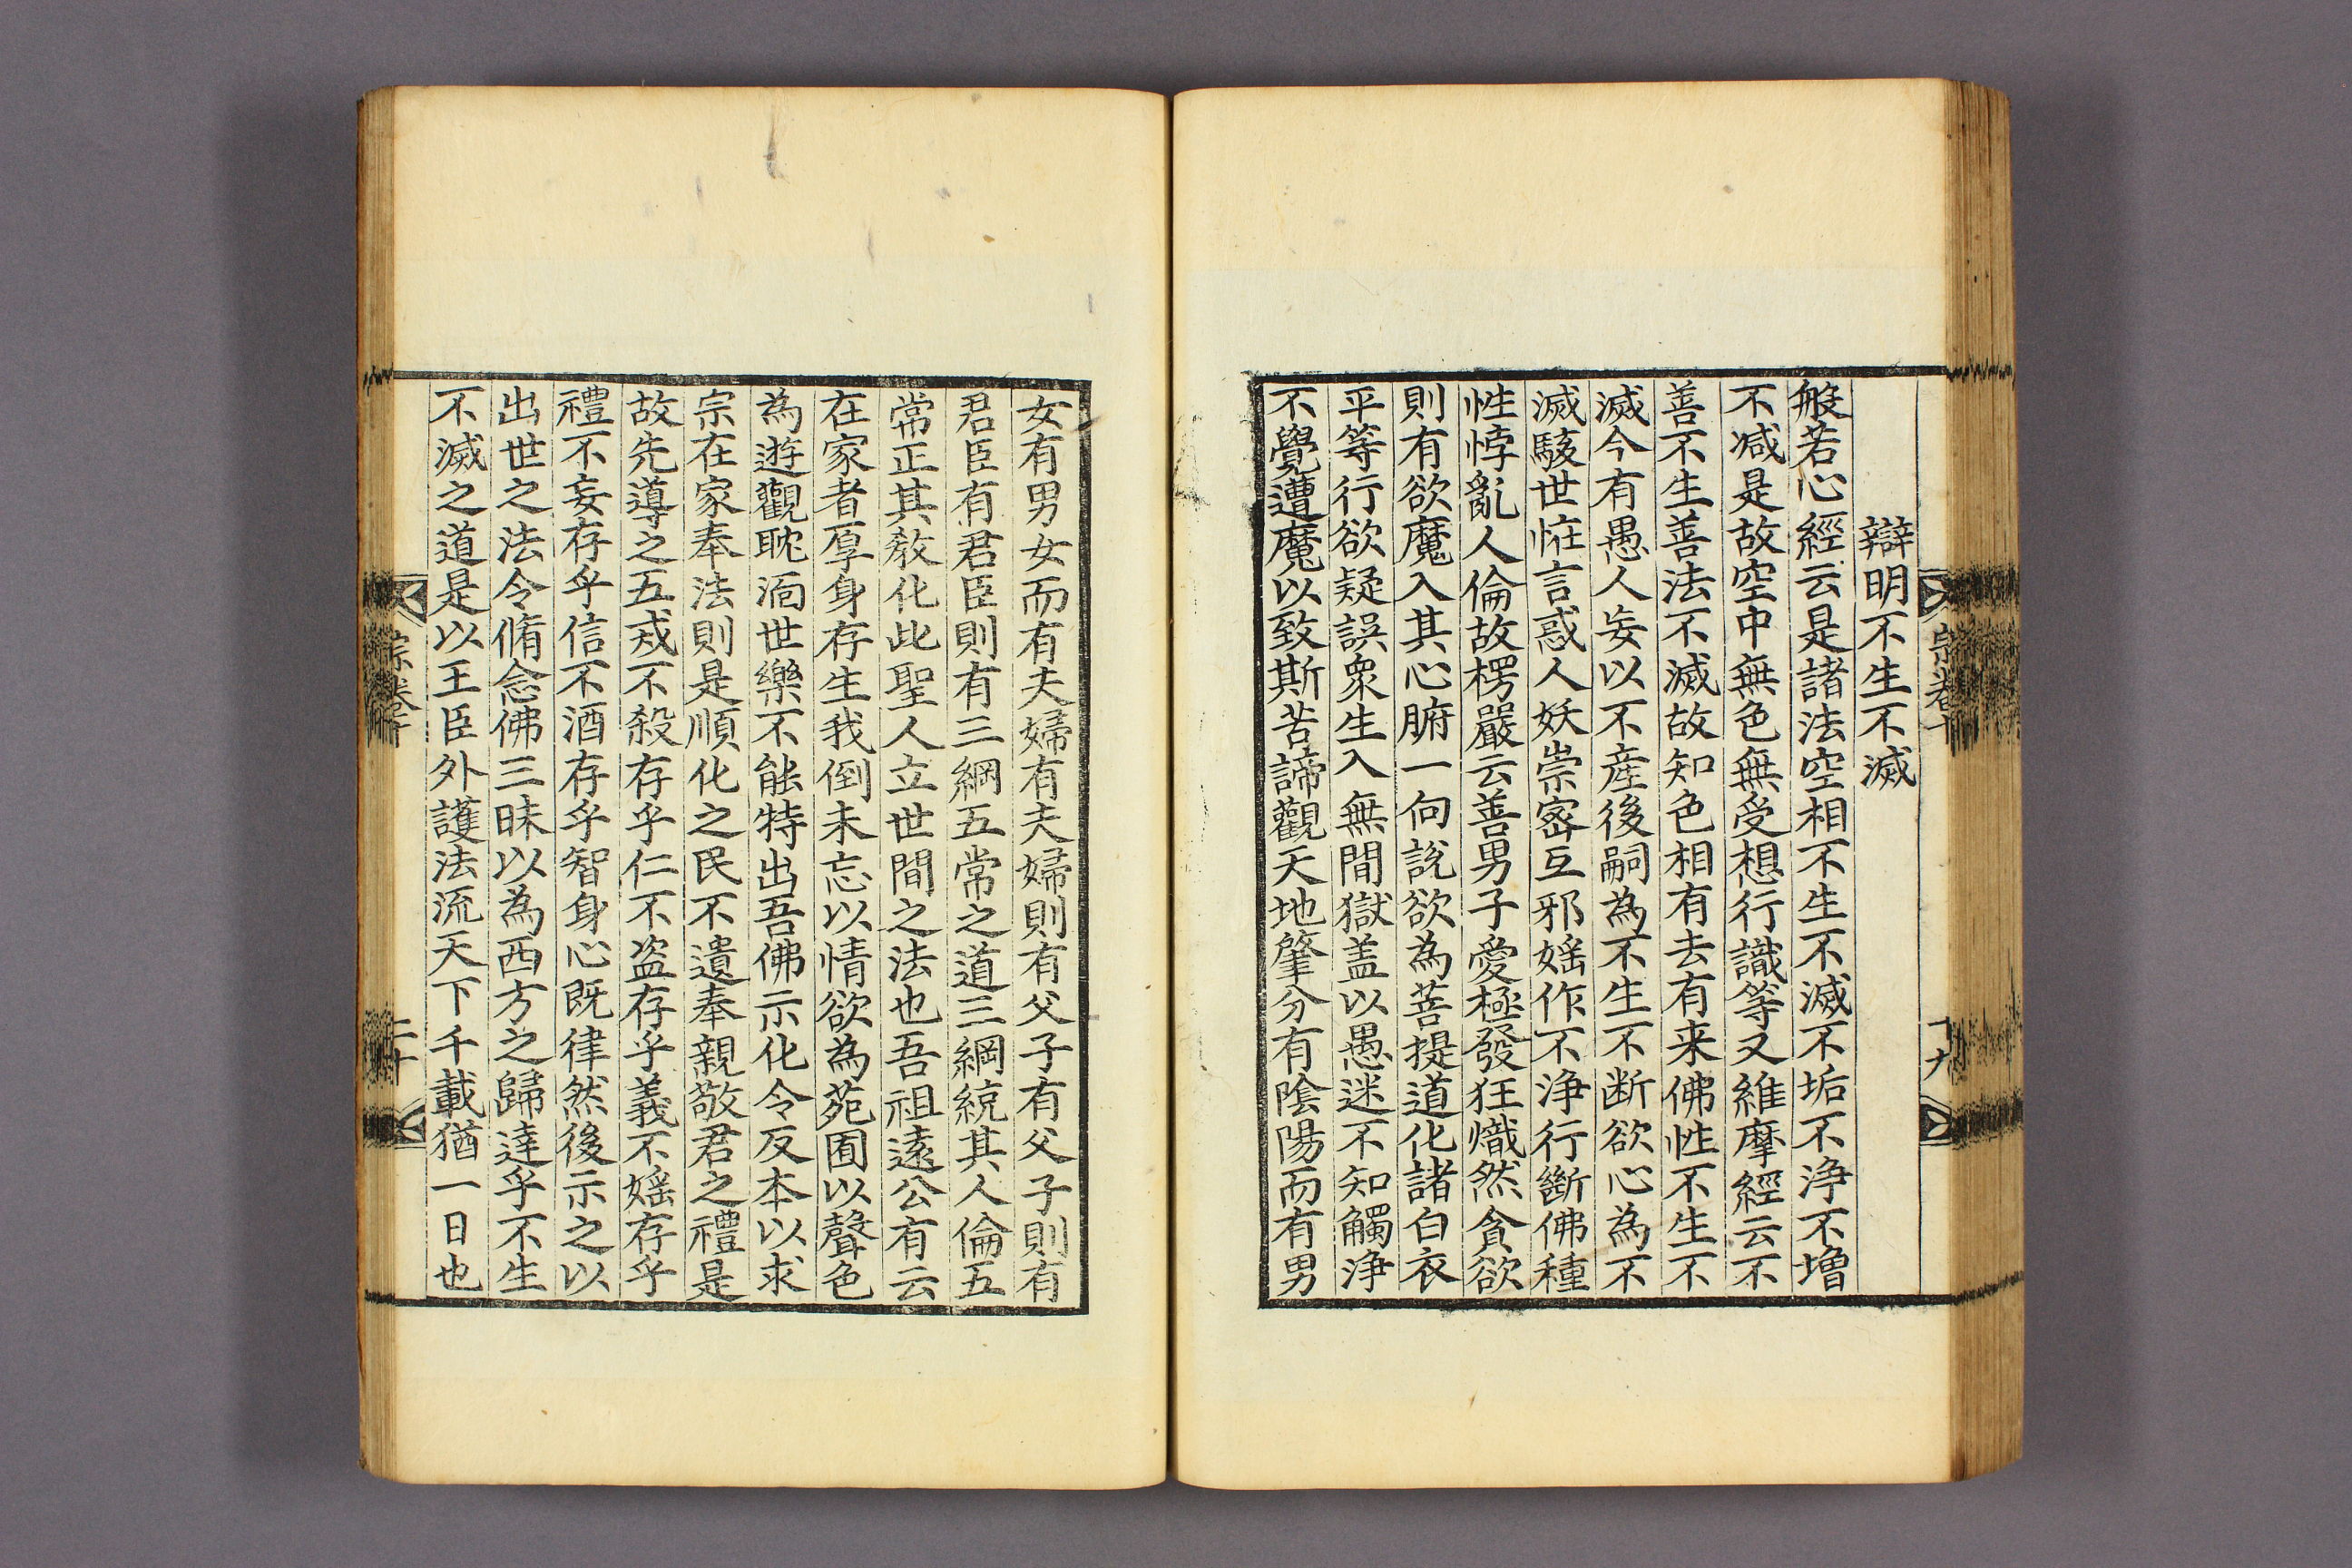 宗卷十
十九
辯明不生不滅
般若心經云是諸法空相不生不滅不垢不浄不增
不减是故空中無色無受想行識等又維摩經云不
善不生善法不滅故知色相有去有来佛性不生不
滅今有愚人妄以不產後嗣為不生不断欲心為不
滅駭世恠言惑人妖崇宻互邪婬作不浄行斷佛種
性悖亂人倫故楞嚴云善男子愛極發狂熾然貪欲
則有欲魔入其心腑一向說欲為菩提道化諸白衣
平等行欲疑誤衆生入無間獄盖以愚迷不知觸浄
不覺遭魔以致斯苦諦觀天地肇分有陰陽而有男
女有男女而有夫婦有夫婦則有父子有父子則有
君臣有君臣則有三綱五常之道三綱統其人倫五
常正其教化此聖人立世間之法也吾祖遠公有云
在家者厚身存生我倒未忘以情欲為苑囿以聲色
為遊觀耽湎世樂不能特出吾佛示化令反本以求
宗在家奉法則是順化之民不遺奉親敬君之禮是
故先導之五戒不殺存乎仁不盗存乎義不婬存乎
禮不妄存乎信不酒存乎智身心既律然後示之以
出世之法令脩念佛三昧以為西方之歸達乎不生
不滅之道是以王臣外護法流天下千載猶一日也
宗卷十
二十